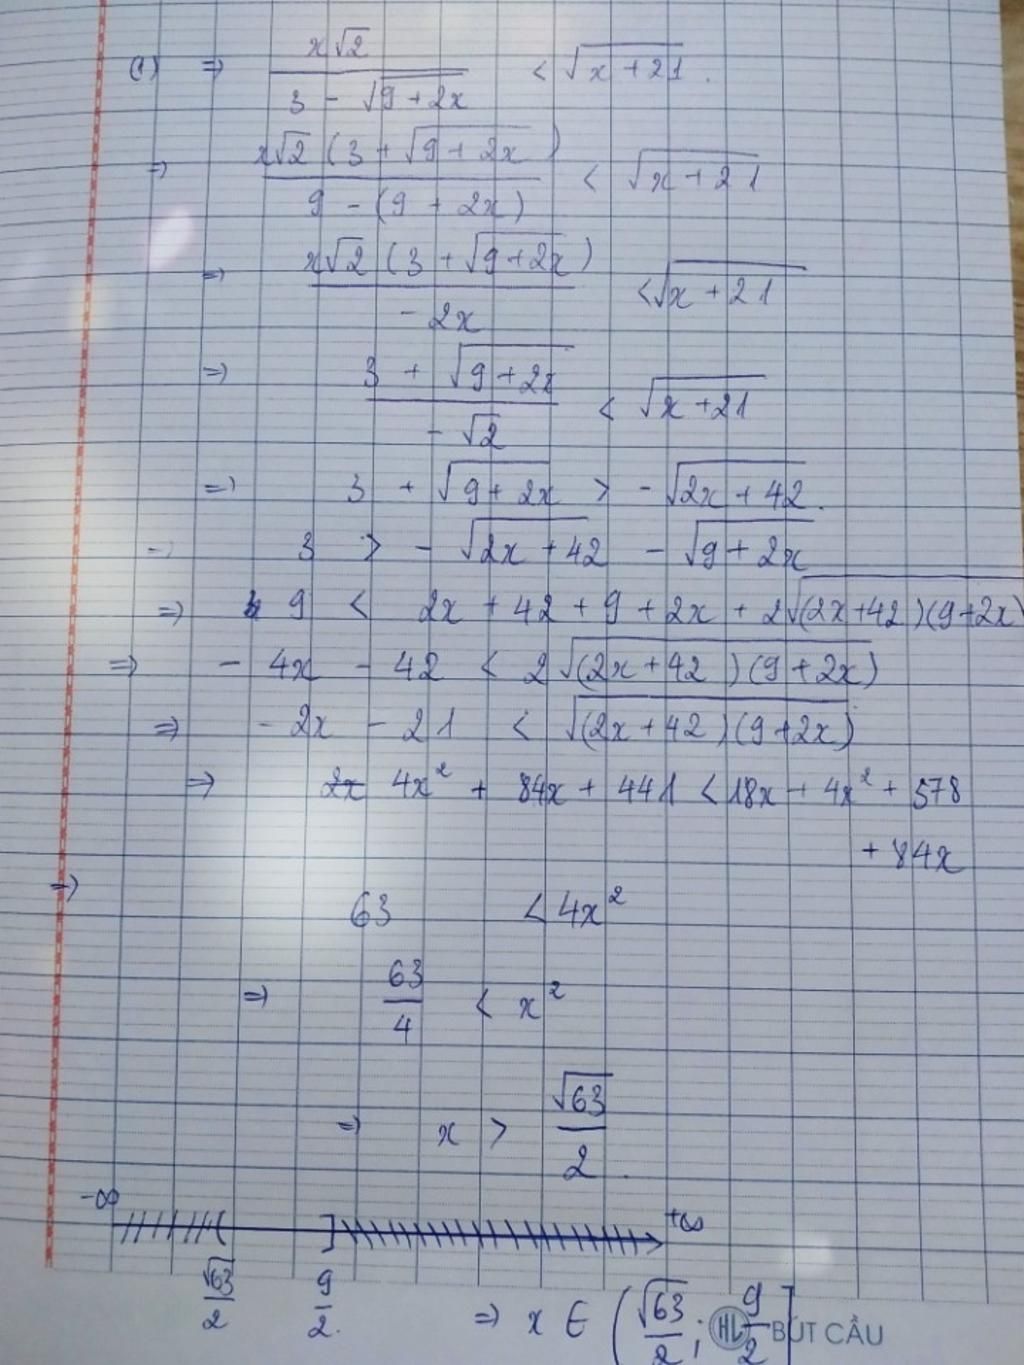 (1) => x√2 / (3 - √(9+2x)) < √(x+21).
=> x√2 (3 + √(9+2x)) / (9 - (9+2x)) < √(x+21)
=> x√2 (3 + √(9+2x)) / (-2x) < √(x+21)
=> (3 + √(9+2x)) / (-√2) < √(x+21)
=> 3 + √(9+2x) > -√(2x+42).
=> 3 > -√(2x+42) - √(9+2x)
=> 9 < 2x + 42 + 9 + 2x + 2√((2x+42)(9+2x))
=> - 4x - 42 < 2√((2x+42)(9+2x))
=> - 2x - 21 < √((2x+42)(9+2x))
=> 2x 4x² + 84x + 441 < 18x + 4x² + 378
+ 84x
=> 63 < 4x²
=> 63/4 < x²
=> x > √63/2.
-∞ ( ] +∞
√63/2 9/2. => x ∈ (√63/2; 9/2]
HL BÚT CẦU